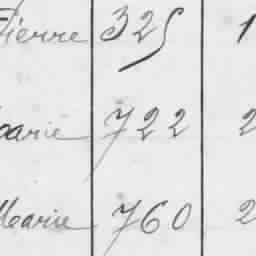 Pierre 325 1
Marie 722 2
Marie 760 2